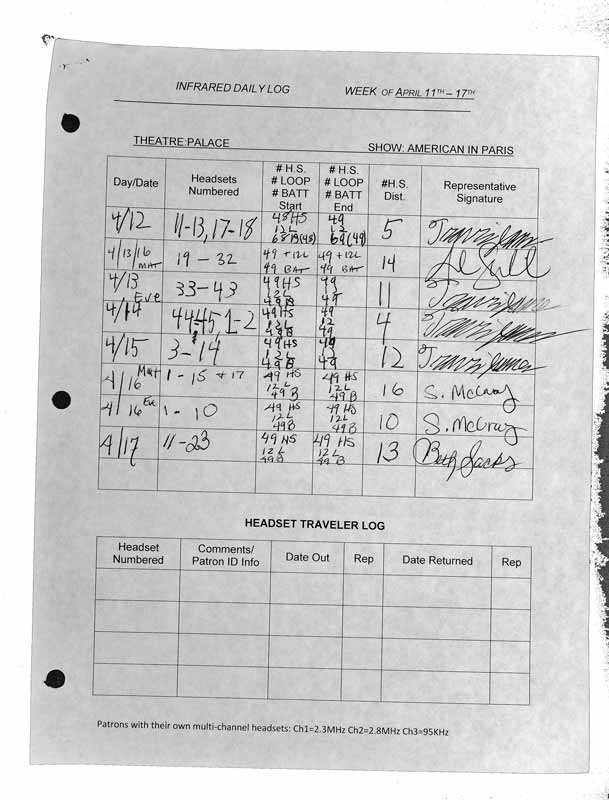 INFRARED DAILY LOG WEEK OF APRIL 11TH – 17TH
THEATRE: PALACE SHOW: AMERICAN IN PARIS
Day/Date Headsets Numbered # H.S. # LOOP # BATT Start # H.S. # LOOP # BATT End #H.S. Dist. Representative Signature
4/12 11-13, 17-18 48 HS 12L 49 12 5
4/13/16 MAT 19 - 32 49 + 12L 49 BAT 49 + 12L 49 BAT 14
4/13 Eve 33-43 49HS 12L 49B 49 12 49 11
4/14 49HS 12L 49B 49 12 49 4
4/15 3-14 49HS 12L 49B 49 12 49 12
4/16 Mat 1 - 15 + 17 49 HS 12L 49B 49 HS 12L 49B 16 S. McCray
4/16 Eve 1 - 10 49 HS 12L 49B 49 HS 12L 49B 10 S. McCray
4/17 11-23 49 HS 12L 49B 49 HS 12L 49B 13 Beth Jacks
HEADSET TRAVELER LOG
Headset Numbered Comments/ Patron ID Info Date Out Rep Date Returned Rep
Patrons with their own multi-channel headsets: Ch1=2.3MHz Ch2=2.8MHz Ch3=95KHz